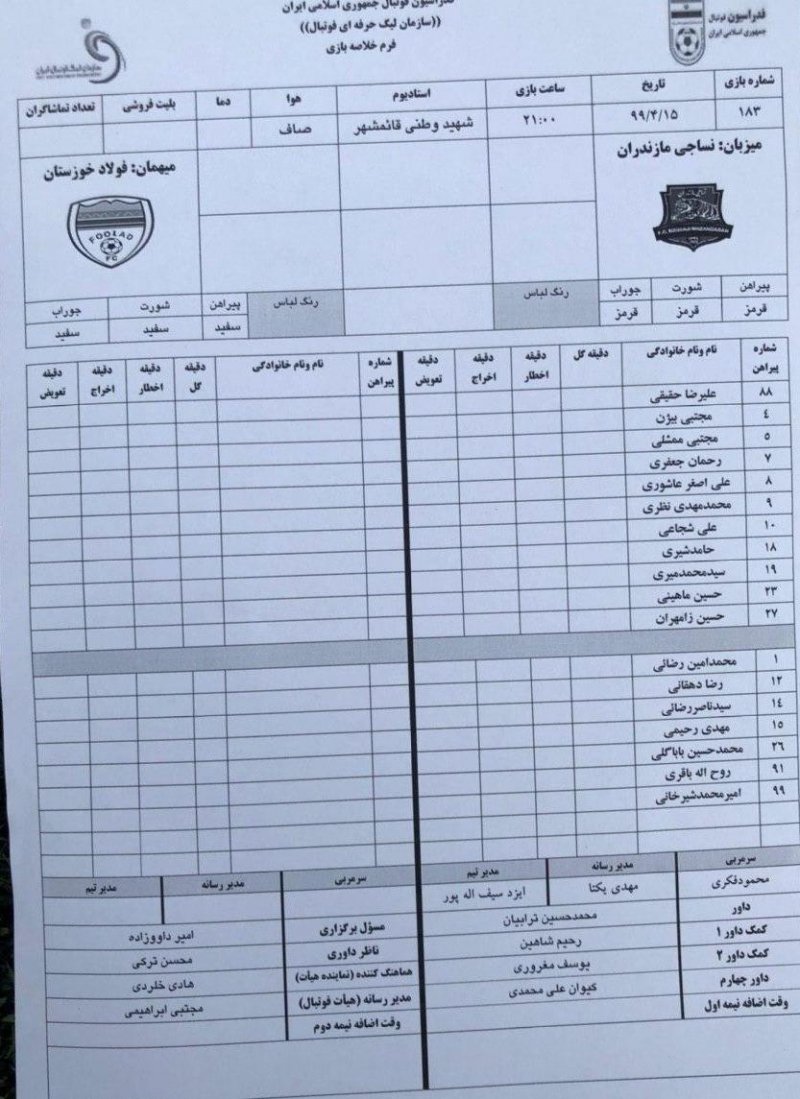 فدراسیون فوتبال جمهوری اسلامی ایران
((سازمان لیگ حرفه ای فوتبال))
فرم خلاصه بازی
فدراسیون فوتبال
جمهوری اسلامی ایران
سازمان لیگ فوتبال ایران
شماره بازی تاریخ ساعت بازی استادیوم هوا دما بلیت فروشی تعداد تماشاگران
۱۸۳ ۹۹/۴/۱۵ ۲۱:۰۰ شهید وطنی قائمشهر صاف
میزبان: نساجی مازندران
میهمان: فولاد خوزستان
FOOLAD
FC
پیراهن شورت جوراب رنگ لباس
قرمز قرمز قرمز
رنگ لباس پیراهن شورت جوراب
سفید سفید سفید
شماره پیراهن نام ونام خانوادگی دقیقه گل دقیقه اخطار دقیقه اخراج دقیقه تعویض
شماره پیراهن نام ونام خانوادگی دقیقه گل دقیقه اخطار دقیقه اخراج دقیقه تعویض
۸۸ علیرضا حقیقی
۴ مجتبی بیژن
۵ مجتبی ممشلی
۷ رحمان جعفری
۸ علی اصغر عاشوری
۹ محمدمهدی نظری
۱۰ علی شجاعی
۱۸ حامدشیری
۱۹ سیدمحمدمیری
۲۳ حسین ماهینی
۲۷ حسین زامهران
۱ محمدامین رضائی
۱۲ رضا دهقانی
۱۴ سیدناصررضائی
۱۵ مهدی رحیمی
۲۶ محمدحسین باباگلی
۹۱ روح اله باقری
۹۹ امیرمحمدشیرخانی
سرمربی مدیر رسانه مدیر تیم
محمودفکری مهدی یکتا ایزد سیف اله پور
داور محمدحسین ترابیان
کمک داور ۱ رحیم شاهین
کمک داور ۲ یوسف مغروری
داور چهارم کیوان علی محمدی
وقت اضافه نیمه اول
سرمربی مدیر رسانه مدیر تیم
مسؤل برگزاری امیر داووزاده
ناظر داوری محسن ترکی
هماهنگ کننده (نماینده هیأت) هادی خلردی
مدیر رسانه (هیأت فوتبال) مجتبی ابراهیمی
وقت اضافه نیمه دوم